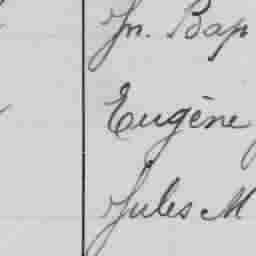 Jn. Bap
Eugène
Jules M